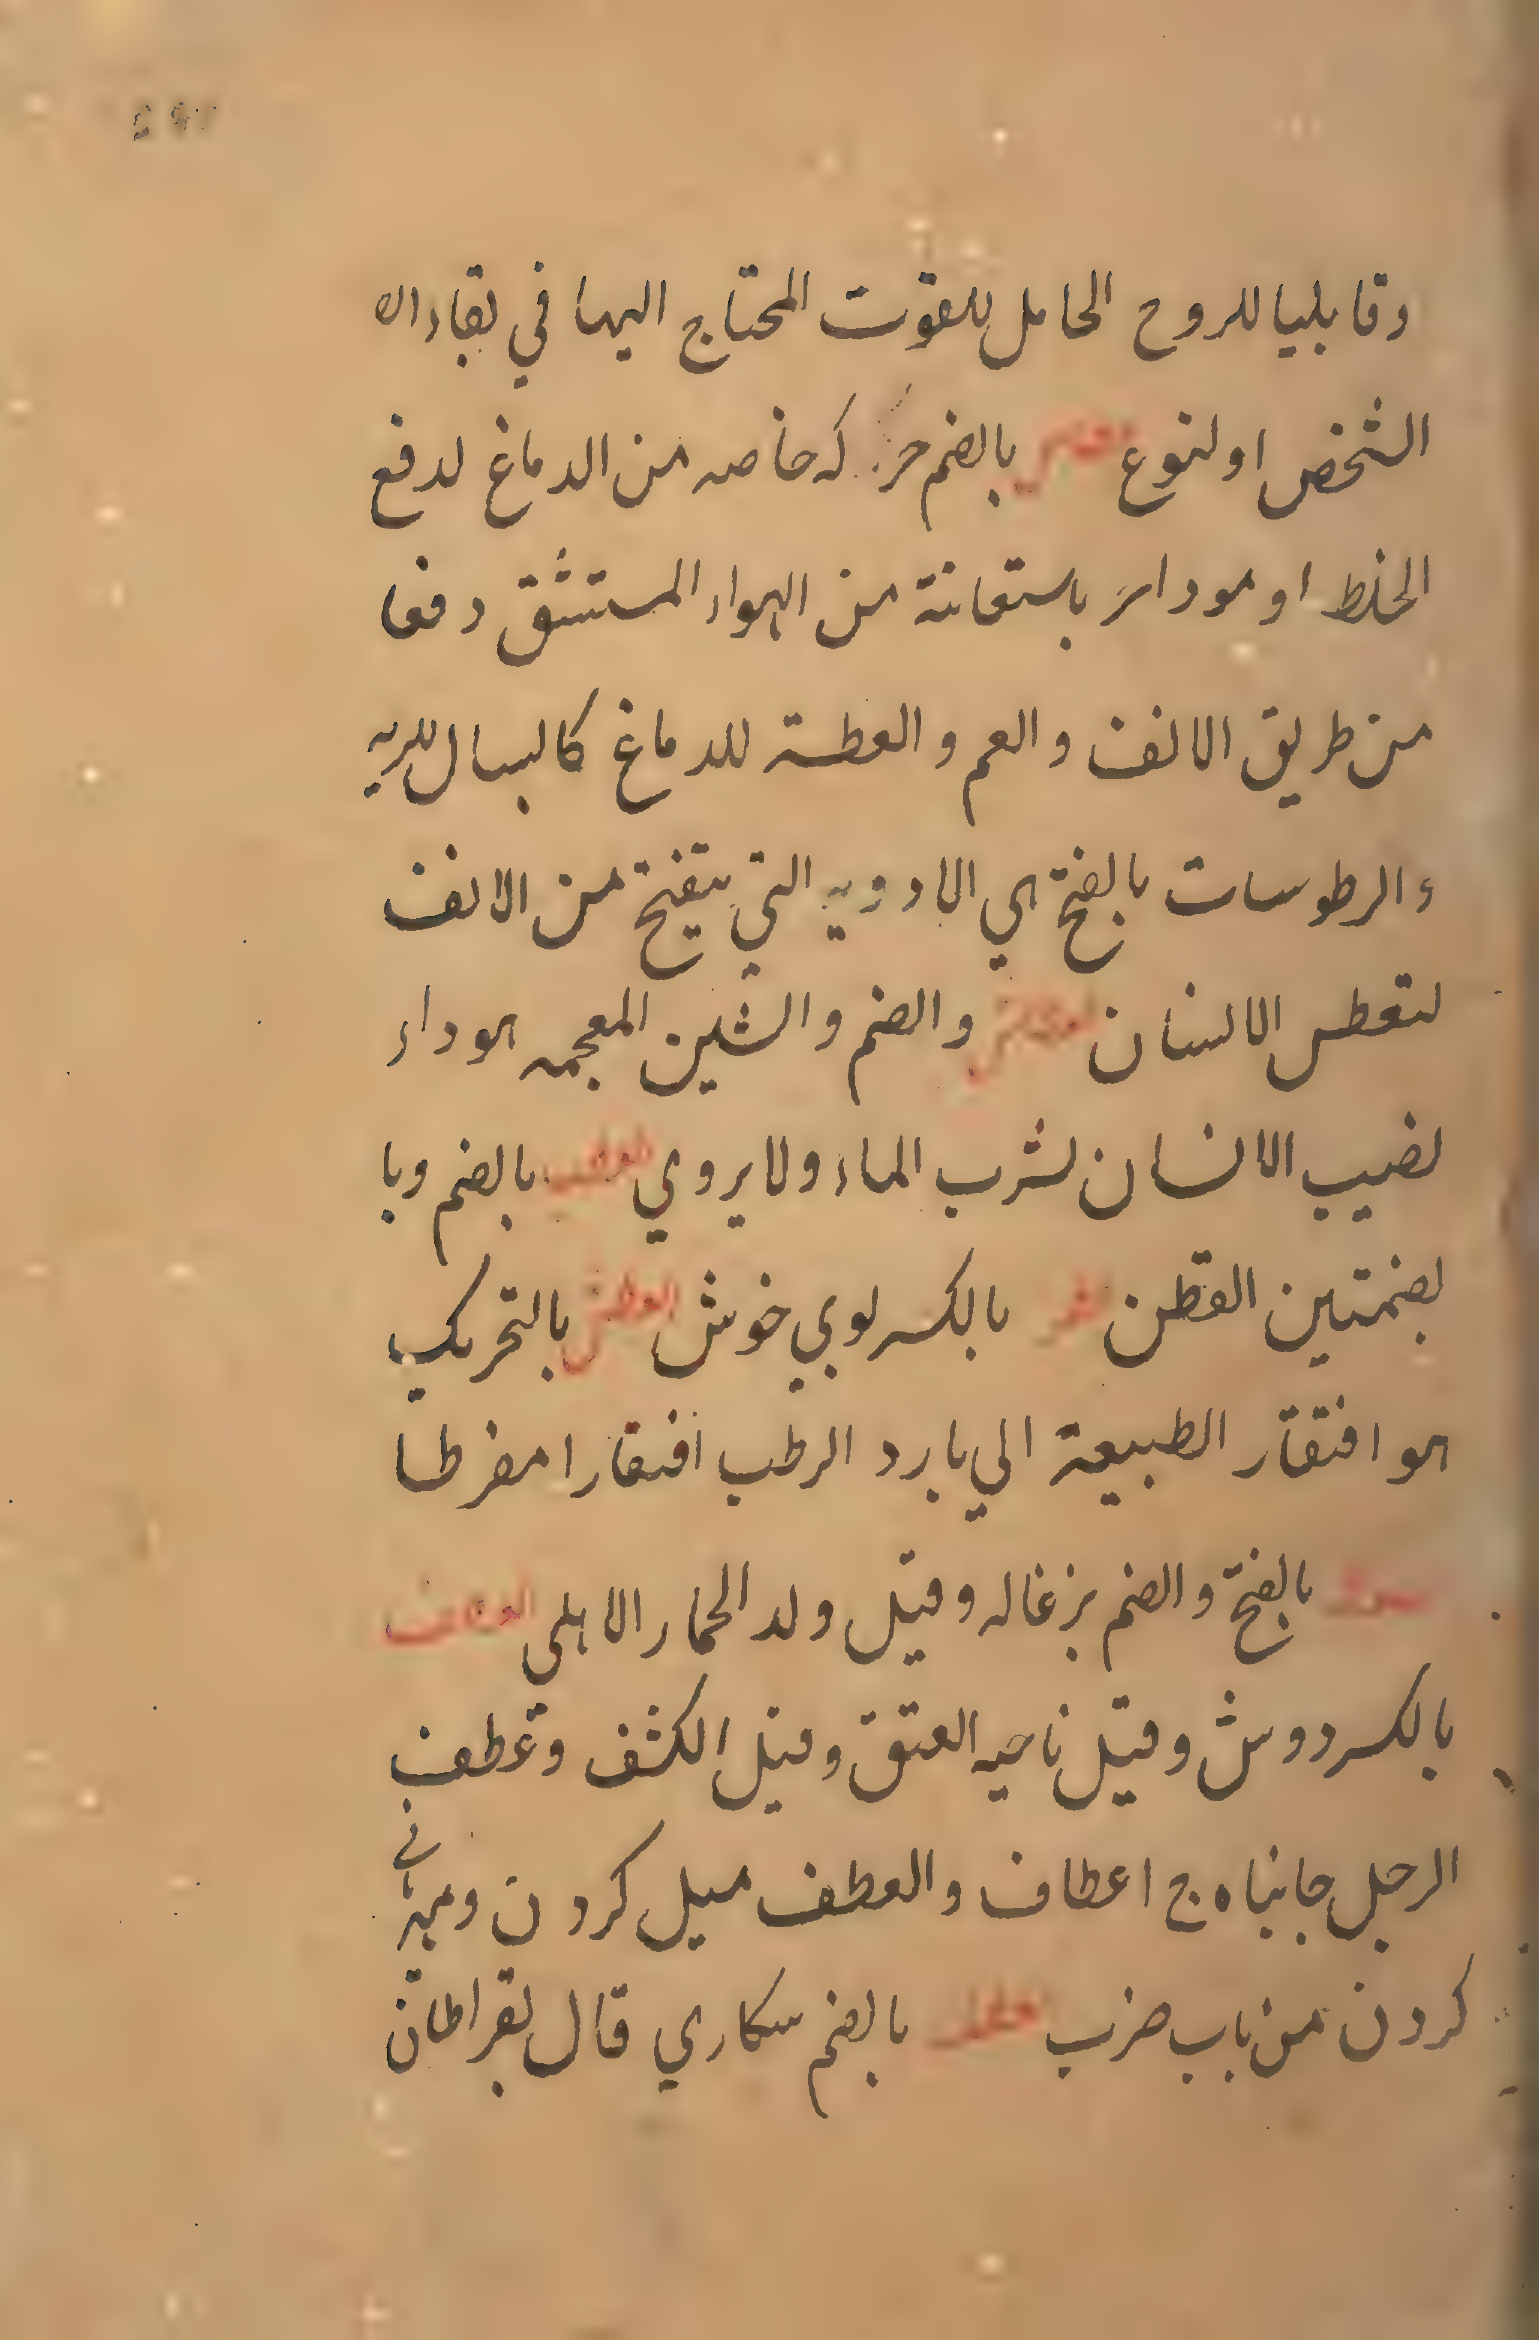 وقابليا للروح الحامل للقوت المحتاج اليها في بقاء ال
الشخص او لنوع بالضم حركه خاصه من الدماغ لدفع
الخلط او موداسر باستعانة من الهواء المستنشق دفعا
من طريق الانف والعم والعطسة للدماغ كالسعال للريه
والرطوسات بالفتح هي الادويه التي يتفيح من الانف
لتعطس الانسان والضم والشين المعجمه هو داء
لضيب الانسان لشرب الماء ولا يروي بالضم وبا
بضمتين القطن عطر بالكسر لوبي خوش العطش بالتحريك
هو افتقار الطبيعة الي بارد الرطب افتقارا مفرطا
بالفتح والضم بزغاله وقيل ولد الحمار الاهلي العطف
بالكسر دوش وقيل ناحيه العتق وقيل الكثف وعطف
الرجل جانباه ج اعطاف والعطف ميل كردن ومهرباني
كردن من باب ضرب بالضم سكاري قال بقراطان